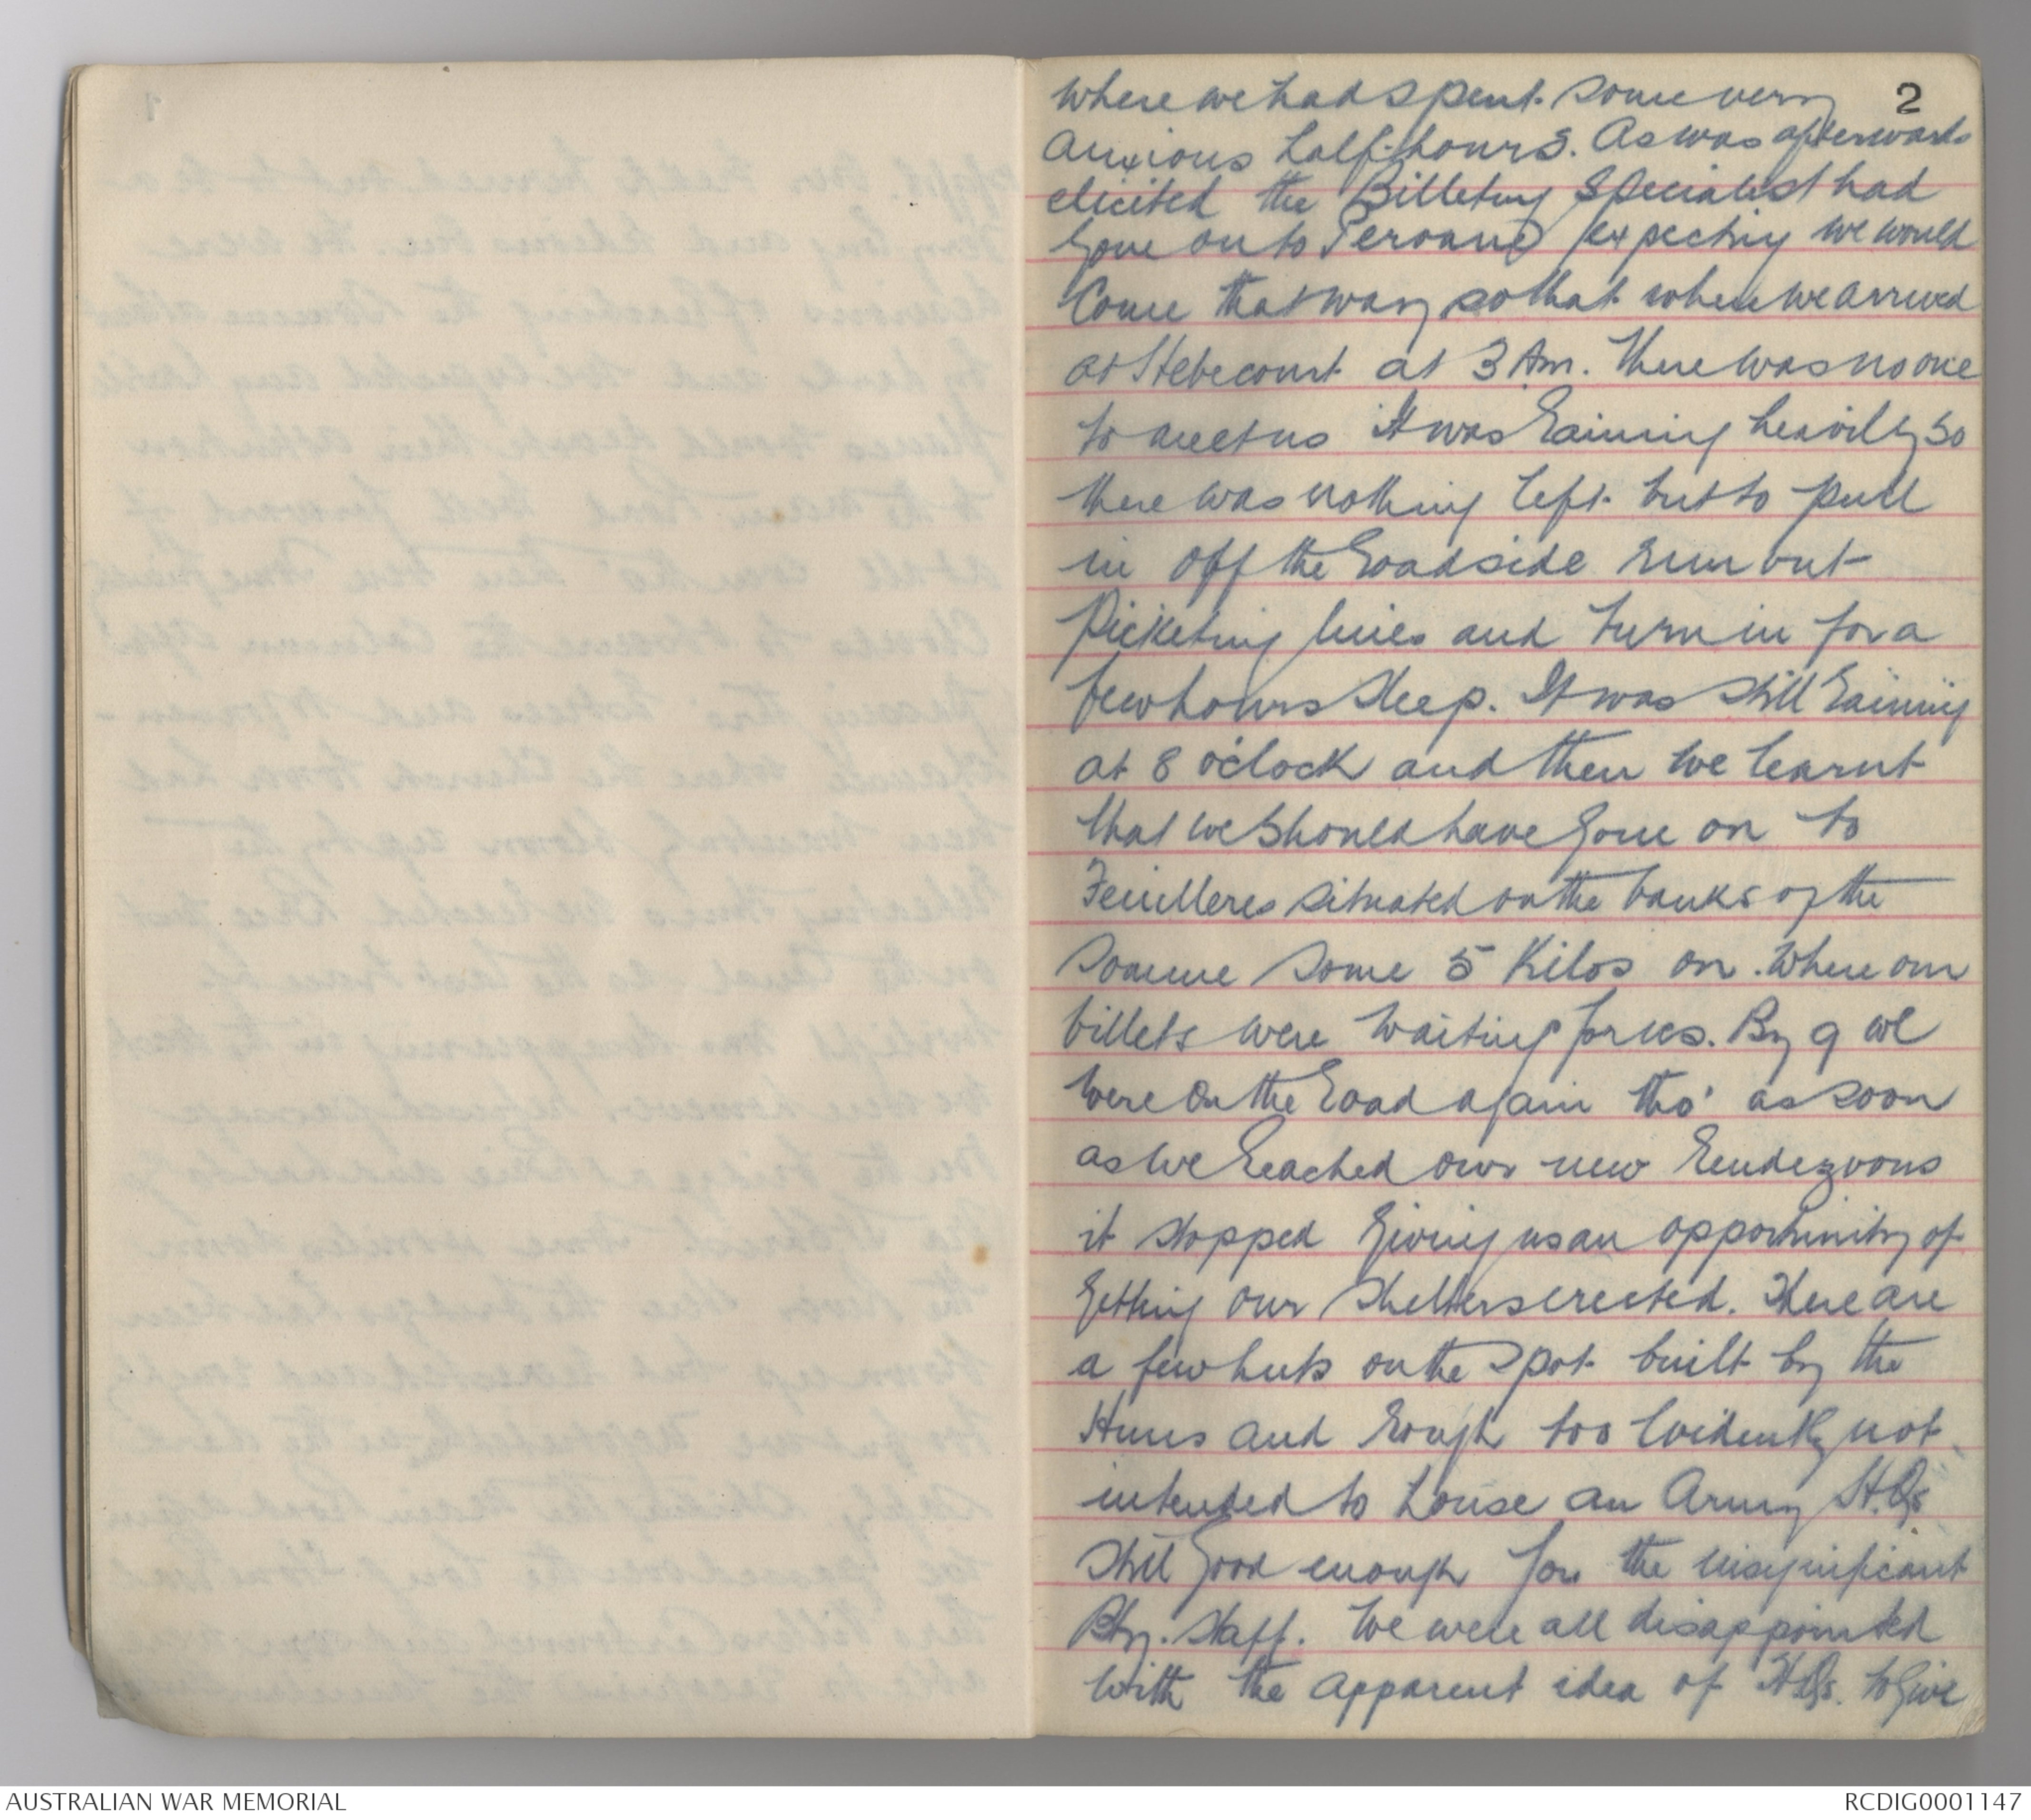 2
where we had spent some very
anxious half-hours. As was afterwards
elicited the Billeting Specialist had
gone on to Peronne expecting we would
come that way so that when we arrived
at Hebecourt at 3 Am. there was no one
to meet us It was raining heavily so
there was nothing left but to pull
in off the roadside run out
Picketing lines and turn in for a
few hours sleep. It was still raining
at 8 o'clock and then we learnt
that we should have gone on to
Feuilleres situated on the banks of the
Somme some 5 Kilos on. Where our
billets were waiting for us. By 9 we
were on the road again tho' as soon
as we reached our new rendezvous
it stopped giving us an opportunity of
getting our shelters erected. There are
a few huts on the spot built by the
Huns and rough too evidently not
intended to house an Army H.Qs
still good enough for the insignificant
Bty. Staff. We were all disappointed
with the apparent idea of HQs. to give
AUSTRALIAN WAR MEMORIAL
RCDIG0001147